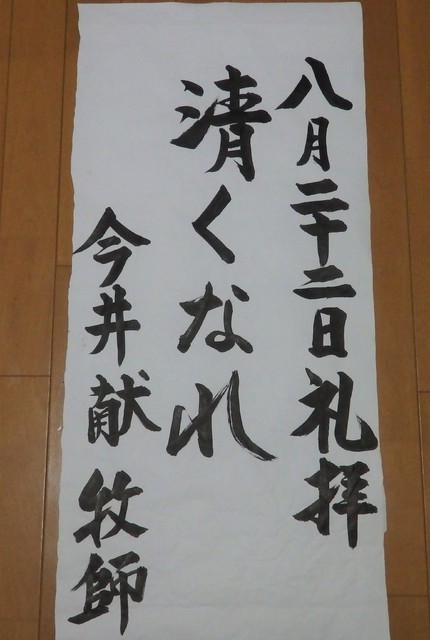 八月二十二日礼拝
清くなれ
今井献牧師